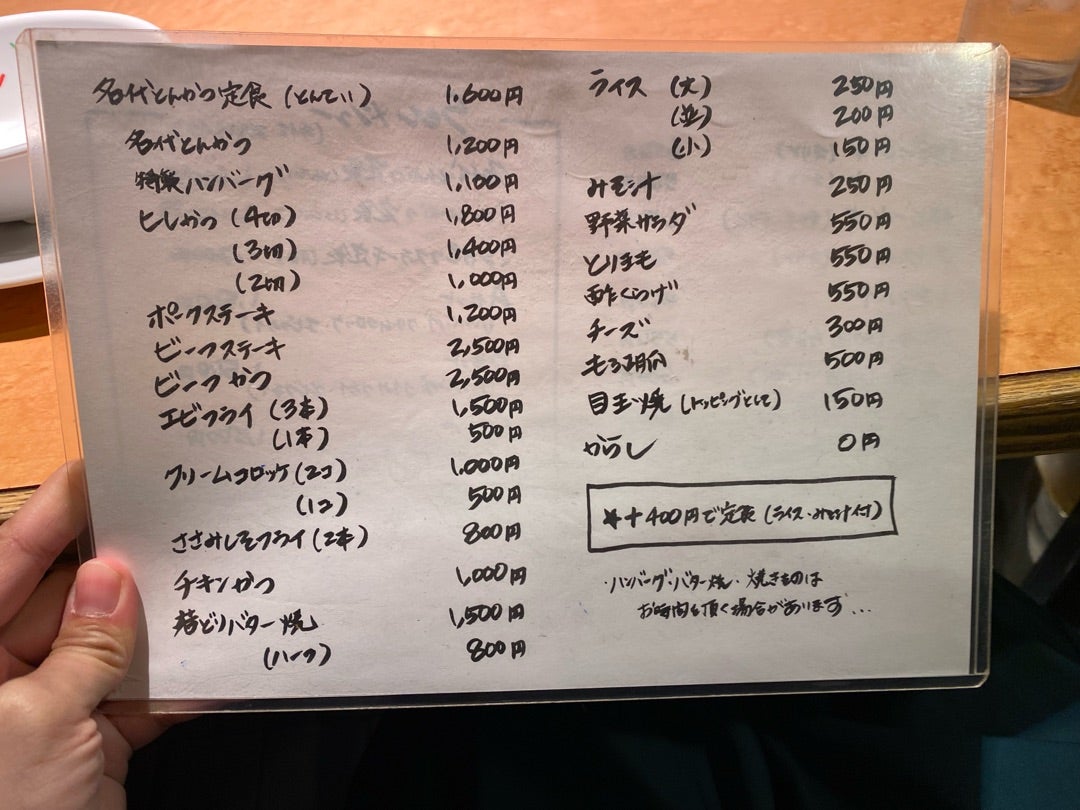 名代とんかつ定食 (とんてい) 1,600円
名代とんかつ 1,200円
特製ハンバーグ 1,100円
ヒレかつ (4切) 1,800円
(3切) 1,400円
(2切) 1,000円
ポークステーキ 1,200円
ビーフステーキ 2,500円
ビーフかつ 2,500円
エビフライ (3本) 1,500円
(1本) 500円
クリームコロッケ (2コ) 1,000円
(1コ) 500円
ささみしそフライ (2本) 800円
チキンかつ 1,000円
若どりバター焼 1,500円
(ハーフ) 800円
ライス (大) 250円
(並) 200円
(小) 150円
みそ汁 250円
野菜サラダ 550円
とりまも 550円
酢くらげ 550円
チーズ 300円
もろ胡瓜 500円
目玉焼 (トッピングとして) 150円
からし 0円
★+400円で定食 (ライス・みそ汁付)
・ハンバーグ・バター焼・焼きものは
お時間を頂く場合があります...